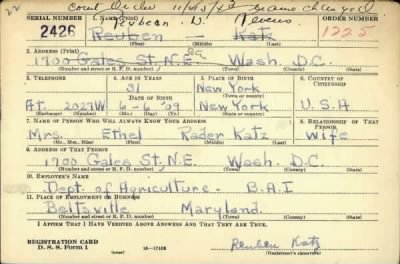 22 Court Order 11/25/43 name changed
SERIAL NUMBER 1. NAME (Print) Reuben D. ORDER NUMBER
2426 Reuben — Katz 1225
(First) (Middle) (Last)
2. ADDRESS (Print)
1700 Gales St., N.E. Wash. D.C.
(Number and street or R. F. D. number) (Town) (County) (State)
3. TELEPHONE 4. AGE IN YEARS 5. PLACE OF BIRTH 6. COUNTRY OF CITIZENSHIP
31 New York
DATE OF BIRTH (Town or county)
At. 2027W 6-6-'09 New York U.S.A
(Exchange) (Number) (Mo.) (Day) (Yr.) (State or country)
7. NAME OF PERSON WHO WILL ALWAYS KNOW YOUR ADDRESS 8. RELATIONSHIP OF THAT PERSON
Mrs. Ethel Rader Katz Wife
(Mr., Mrs., Miss) (First) (Middle) (Last)
9. ADDRESS OF THAT PERSON
1700 Gales St., N.E. Wash. D.C.
(Number and street or R. F. D. number) (Town) (County) (State)
10. EMPLOYER'S NAME
Dept. of Agriculture - B.A.I
11. PLACE OF EMPLOYMENT OR BUSINESS
Beltsville Maryland.
(Number and street or R. F. D. number) (Town) (County) (State)
I AFFIRM THAT I HAVE VERIFIED ABOVE ANSWERS AND THAT THEY ARE TRUE.
REGISTRATION CARD Reuben Katz
D. S. S. Form 1 (over) 16—17105 (Registrant's signature)